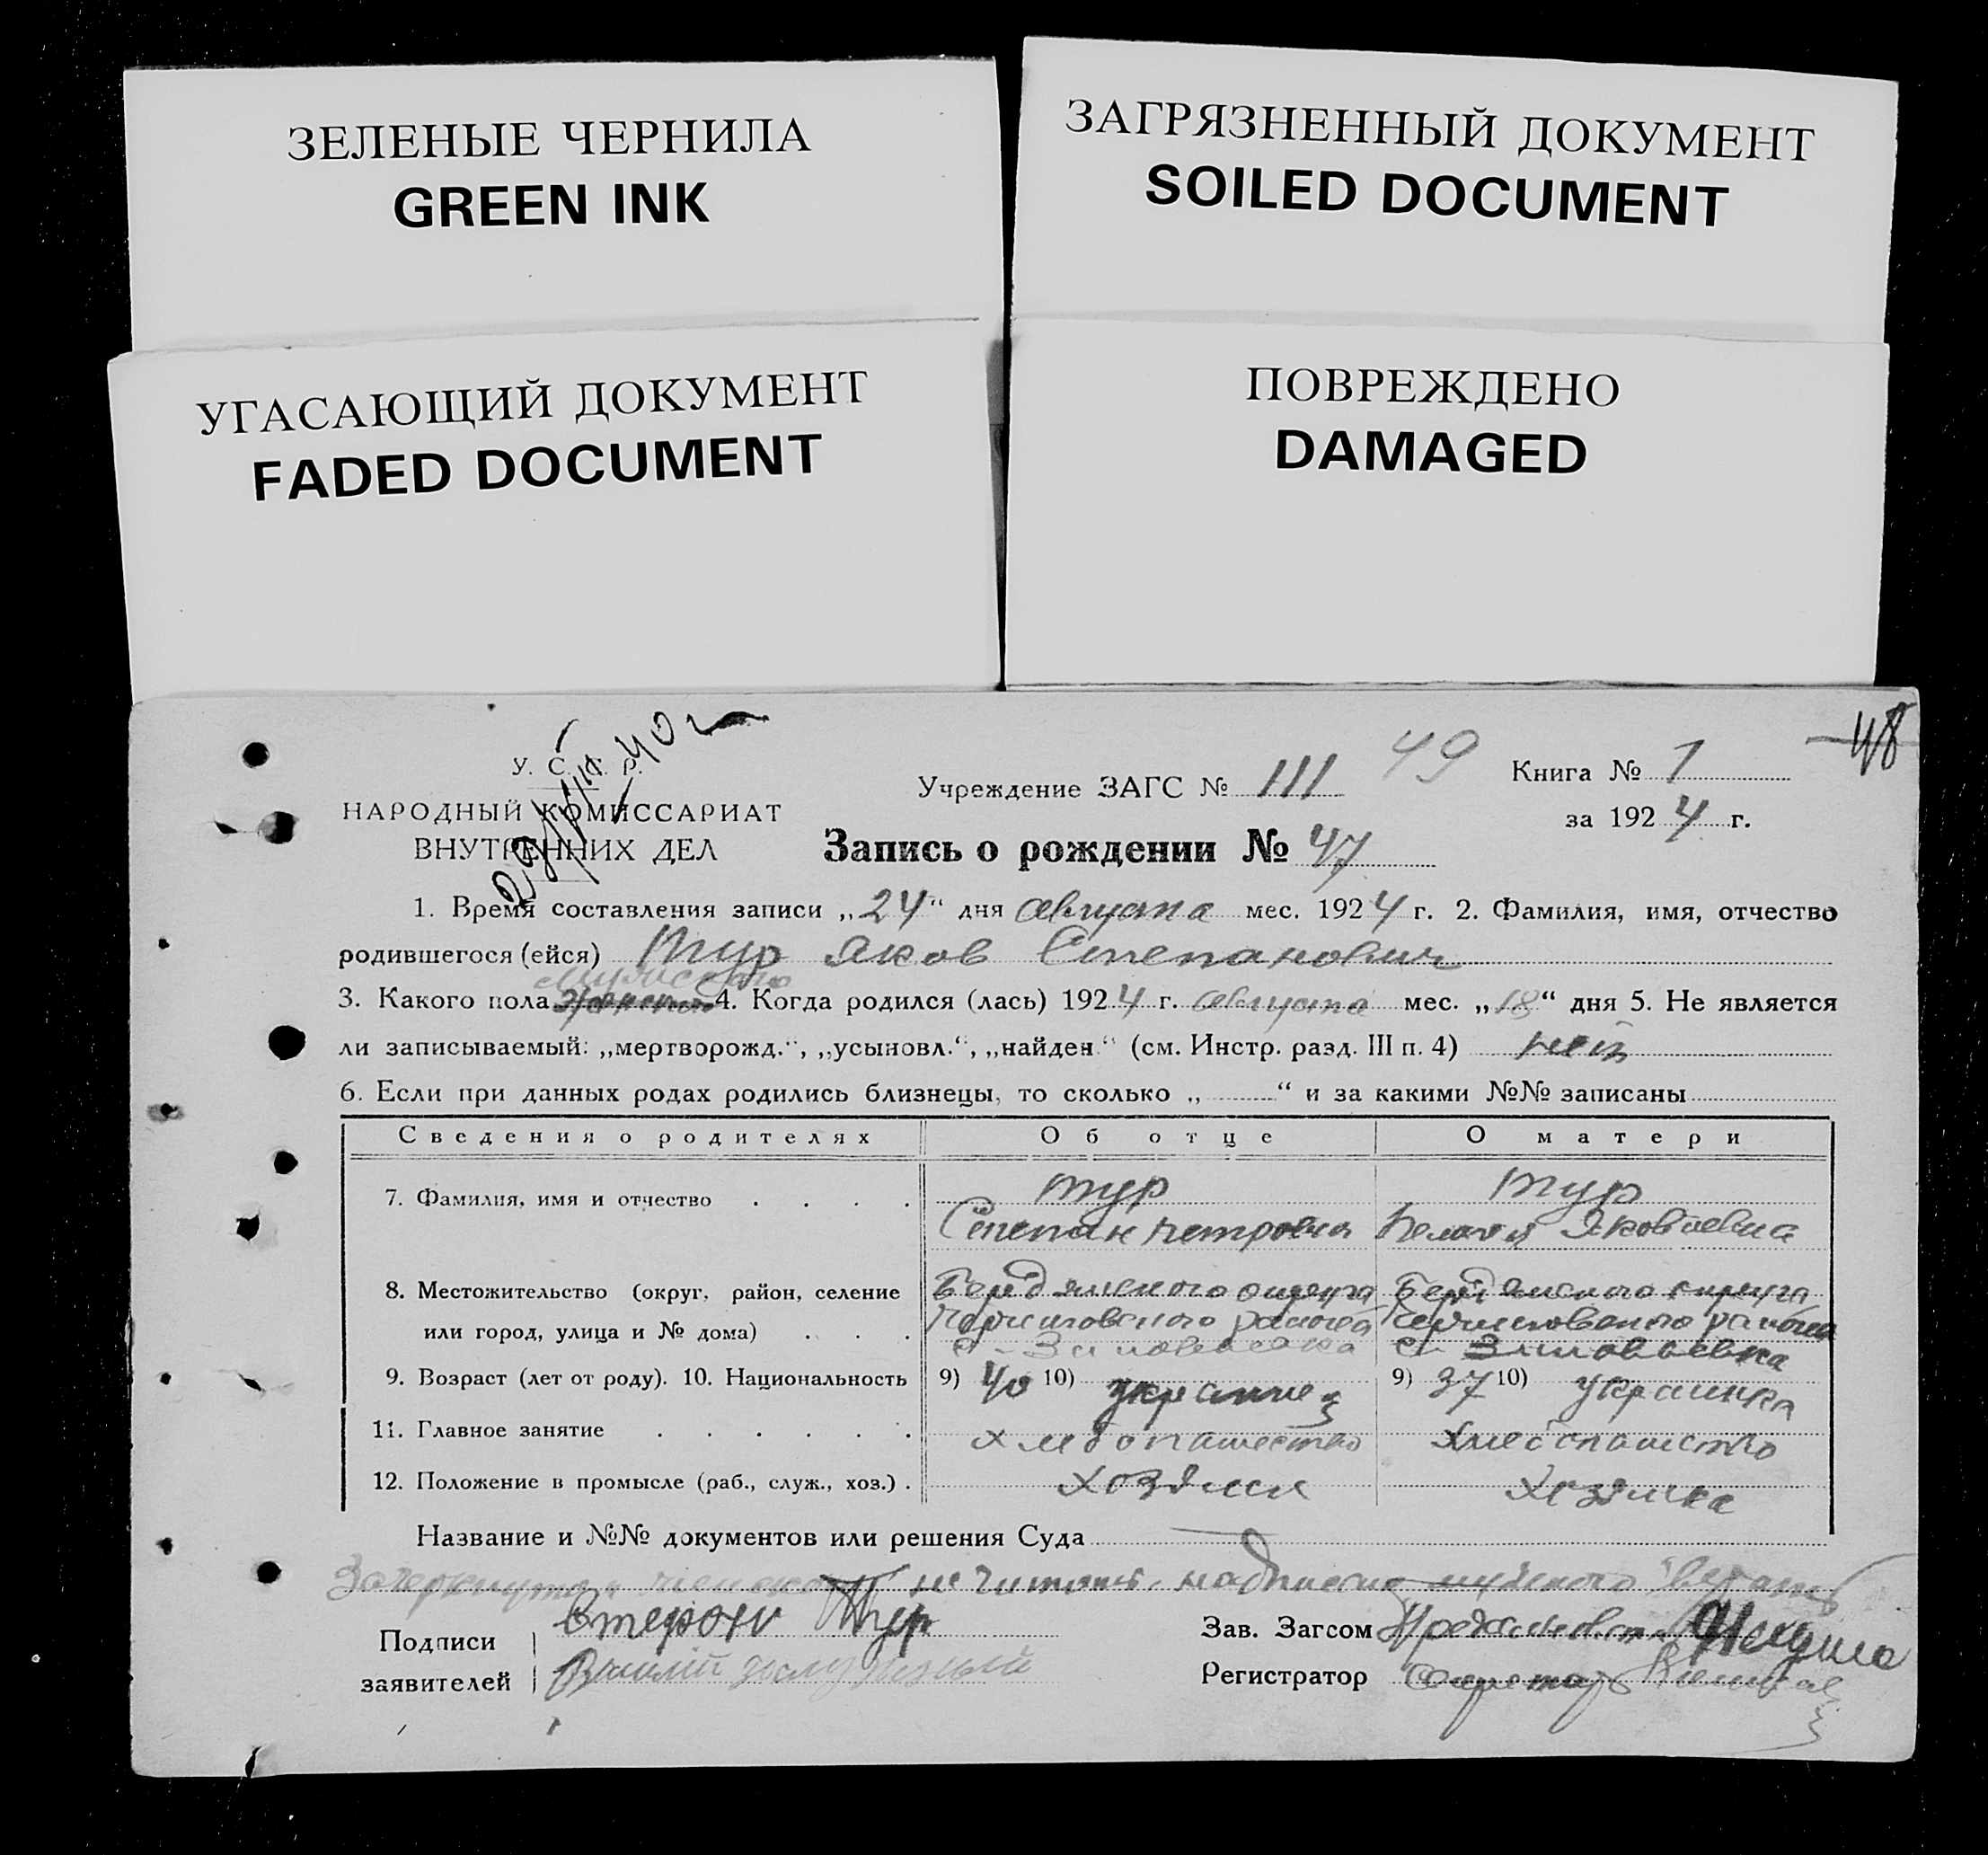 ЗЕЛЕНЫЕ ЧЕРНИЛА
GREEN INK
ЗАГРЯЗНЕННЫЙ ДОКУМЕНТ
SOILED DOCUMENT
УГАСАЮЩИЙ ДОКУМЕНТ
FADED DOCUMENT
ПОВРЕЖДЕНО
DAMAGED
48
У. С. С. Р.
НАРОДНЫЙ КОМИССАРИАТ
ВНУТРЕННИХ ДЕЛ
Учреждение ЗАГС № III 49
Книга № 1
за 1924 г.
Запись о рождении № 47
1. Время составления записи „24“ дня августа мес. 1924 г. 2. Фамилия, имя, отчество
родившегося (ейся) Тур Яков Степанович
мужского
3. Какого пола женского 4. Когда родился (лась) 1924 г. августа мес. „18“ дня 5. Не является
ли записываемый: „мертворожд.“, „усыновл.“, „найден“ (см. Инстр. разд. III п. 4) нет
6. Если при данных родах родились близнецы, то сколько „ “ и за какими №№ записаны
Сведения о родителях Об отце О матери
7. Фамилия, имя и отчество Тур Тур
Степан Петрович Яковлевна
8. Местожительство (округ, район, селение Бердянского округа Бердянского округа
или город, улица и № дома) района района
с. с.
9. Возраст (лет от роду). 10. Национальность 9) 40 10) украинец 9) 37 10) украинка
11. Главное занятие хлебопашество хлебопашество
12. Положение в промысле (раб., служ., хоз.) хозяин хозяйка
Название и №№ документов или решения Суда
Зачеркнутое женского не читать, надписано мужского
Подписи Тур
заявителей
Зав. Загсом
Регистратор Секретарь